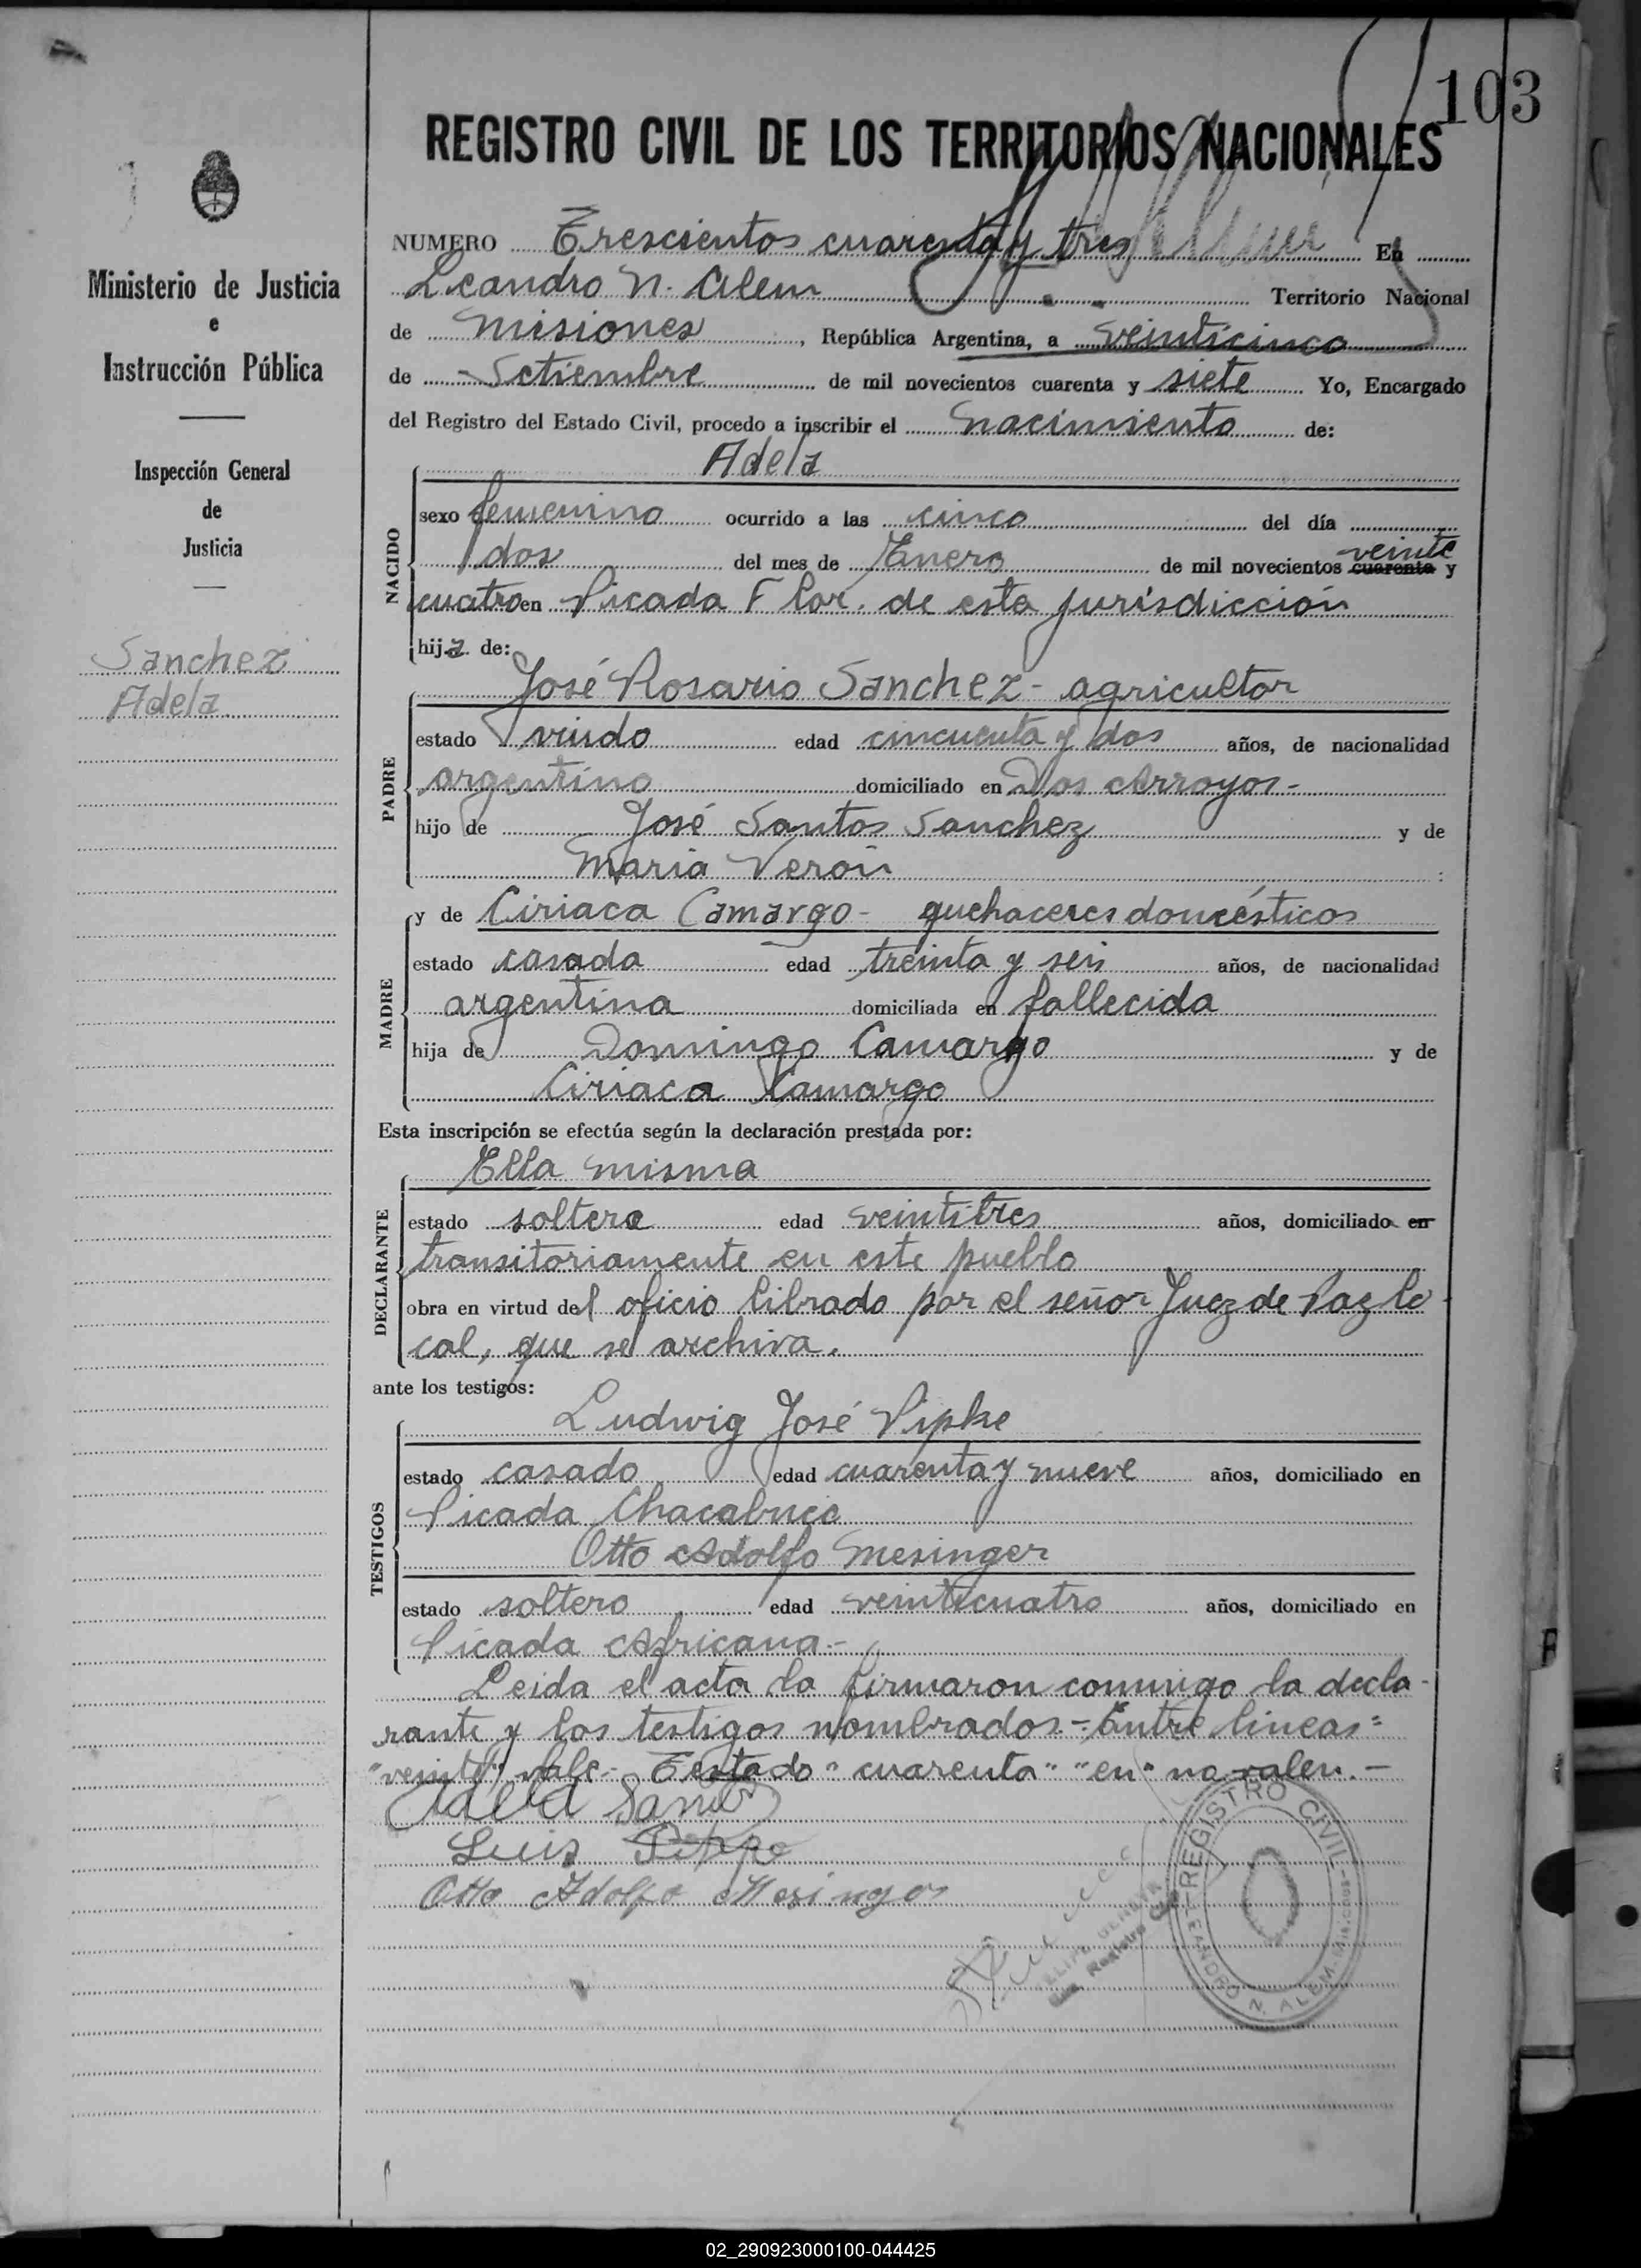 103
REGISTRO CIVIL DE LOS TERRITORIOS NACIONALES
Ministerio de Justicia
e
Instrucción Pública
Inspección General
de
Justicia
Sanchez
Adela
NUMERO Trescientos cuarenta y tres En
Leandro N. Alem Territorio Nacional
de Misiones, República Argentina, a veinticinco
de Setiembre de mil novecientos cuarenta y siete Yo, Encargado
del Registro del Estado Civil, procedo a inscribir el nacimiento de:
Adela
NACIDO
sexo femenino ocurrido a las cinco del día
dos del mes de Enero de mil novecientos cuarenta veinte y
cuatro en Picada Flor. de esta jurisdicción
hija de:
PADRE
José Rosario Sanchez - agricultor
estado viudo edad cincuenta y dos años, de nacionalidad
argentino domiciliado en Dos Arroyos.-
hijo de José Santos Sanchez y de
Maria Veron
MADRE
y de Ciriaca Camargo - quehaceres domésticos
estado casada edad treinta y seis años, de nacionalidad
argentina domiciliada en fallecida
hija de Domingo Camargo y de
Ciriaca Camargo
Esta inscripción se efectúa según la declaración prestada por:
DECLARANTE
Ella misma
estado soltera edad veintitres años, domiciliado en
transitoriamente en este pueblo
obra en virtud del oficio librado por el señor Juez de Paz lo
cal, que se archiva.
ante los testigos:
TESTIGOS
Ludwig José Pipke
estado casado edad cuarenta y nueve años, domiciliado en
Picada Chacabuco
Otto Adolfo Mesinger
estado soltero edad veinticuatro años, domiciliado en
Picada Africana.-
Leida el acta la firmaron conmigo la decla-
rante y los testigos nombrados.- Entre lineas:
"veinte" vale.- Testado "cuarenta" "en" no valen.-
Adela Sanchez
Luis
Otto Adolfo Mesinger
REGISTRO CIVIL
LEANDRO N. ALEM
Registro Civil
02_290923000100-044425